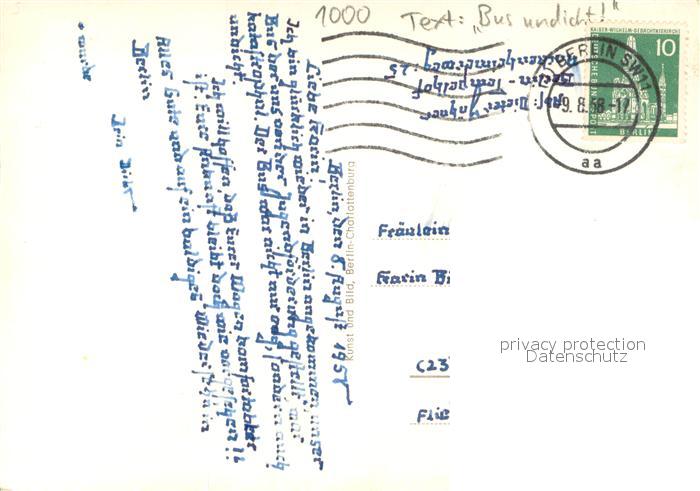 1000 Text: „Bus undicht!“
KAISER-WILHELM-GEDÄCHTNISKIRCHE
10
DEUTSCHE BUNDESPOST
BERLIN
BERLIN SW 11
9.8.58-17
aa
Abs: Dieter
Berlin-Tempelhof
Berlin, den 8. August 1958
Liebe Karin!
Ich bin glücklich wieder in Berlin angekommen, unser
Bus der uns von der Jugendförderung gestellt war
katastrophal. Der Bus war nicht nur eng, sondern auch
undicht.
Ich will hoffen, daß Eurer Wagen komfortabler
ist. Eure Ankunft bleibt doch wie vorgesehen!!
Alles Gute und auf ein baldiges Wiedersehen in
Berlin
Dein Dieter
Kunst und Bild, Berlin-Charlottenburg
Fräulein
Karin Bi
(23)
Flie
privacy protection
Datenschutz